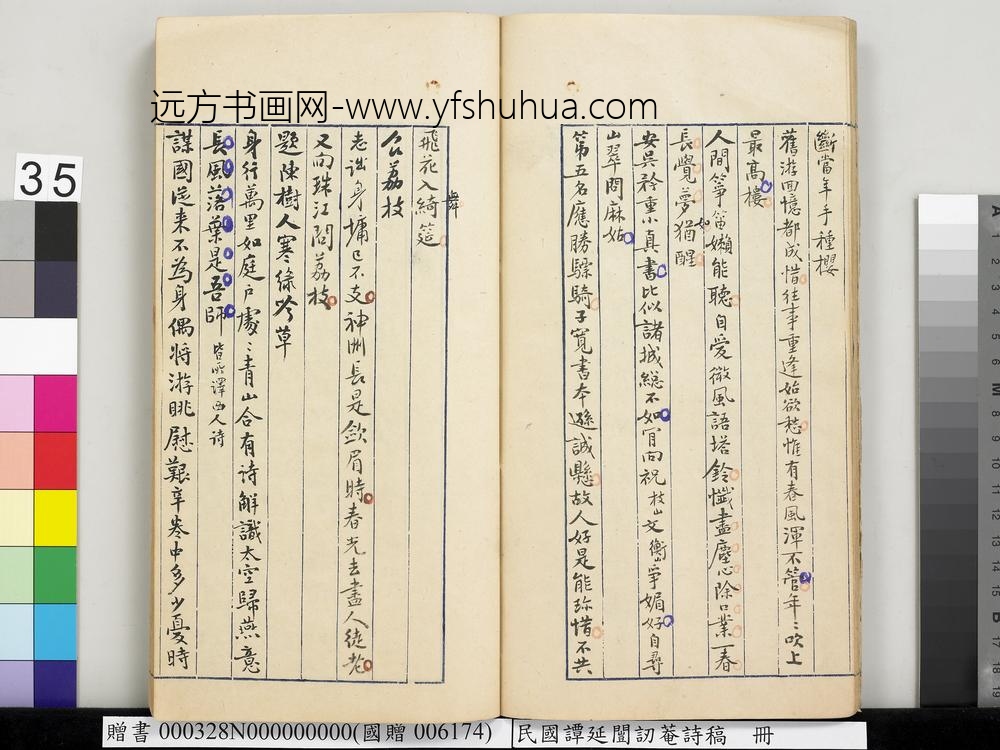 远方书画网-www.yfshuhua.com
35
斷當年手種櫻
舊游回憶都成惜往事重逢始欲愁惟有春風渾不管年〻吹上
最高樓
人間箏笛嬾能聽自愛微風語塔鈴懺盡塵心除口業一春
長覺夢猶醒
如
安吳矜重小真書比似諸城總不如肎向祝枝山文衡山爭媚好自尋
山翠問麻姑
第五名應勝驃騎子寬書本遜誠懸故人好是能珍惜不共
舞
飛花入綺筵
食荔枝
老詘身慵已不支神洲長是斂眉時春光去盡人徒老
又向珠江問荔枝
題陳樹人寒綠吟草
身行萬里如庭戶處〻青山合有詩解識太空歸燕意
長風落葉是吾師皆所譯西人詩
謀國從來不為身偶將游眺慰艱辛卷中多少憂時
贈書 000328N000000000(國贈 006174)
民國譚延闓訒菴詩稿 冊